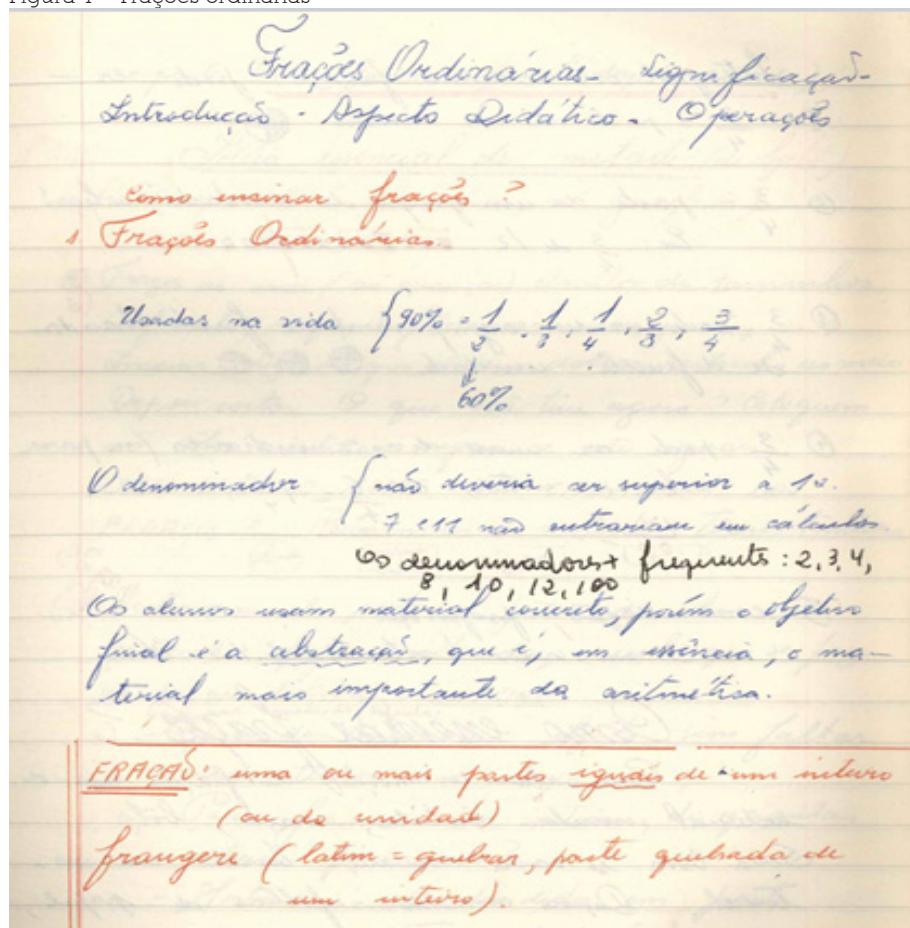 Figura 1 - Frações ordinárias
Frações Ordinárias - Significação -
Introdução - Aspecto Didático - Operações
Como ensinar frações?
1 Frações Ordinárias.
Usadas na vida { 90% = 1/2, 1/3, 1/4, 2/3, 3/4
↓
60%
O denominador { não deveria ser superior a 12.
7 e 11 não entrariam em cálculos.
Os denominadores + frequentes: 2, 3, 4,
8, 10, 12, 100
Os alunos usam material concreto, porém o objetivo
final é a abstração, que é, em essência, o ma-
terial mais importante da aritmética.
FRAÇÃO: uma ou mais partes iguais de um inteiro
(ou da unidade)
frangere (latim = quebrar, parte quebrada de
um inteiro).